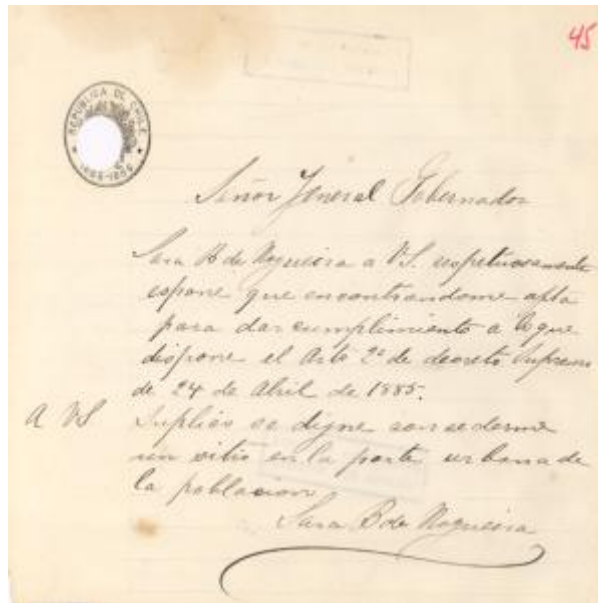 45
REPÚBLICA DE CHILE
Señor Jeneral Gobernador
Sara B de Nogueira a VS. respetuosamente
espone que encontrandome apta
para dar cumplimiento a lo que
dispone el Arto 2º de decreto Supremo
de 24 de Abril de 1885.
A VS Suplico se digne consederme
un sitio en la parte urbana de
la poblacion
Sara B de Nogueira